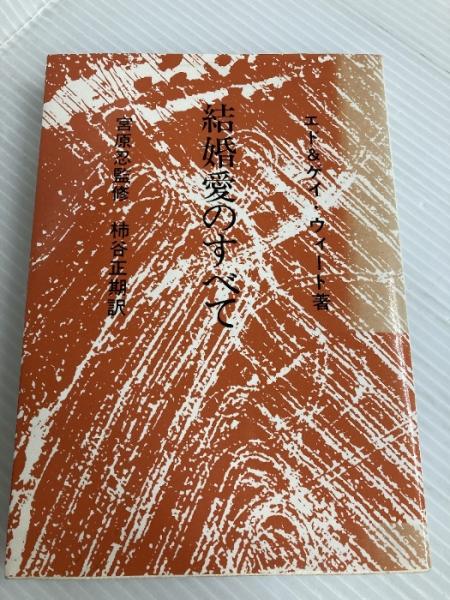 エト&ゲイ・ウィート著
結婚愛のすべて
宮原忍監修 柿谷正期訳